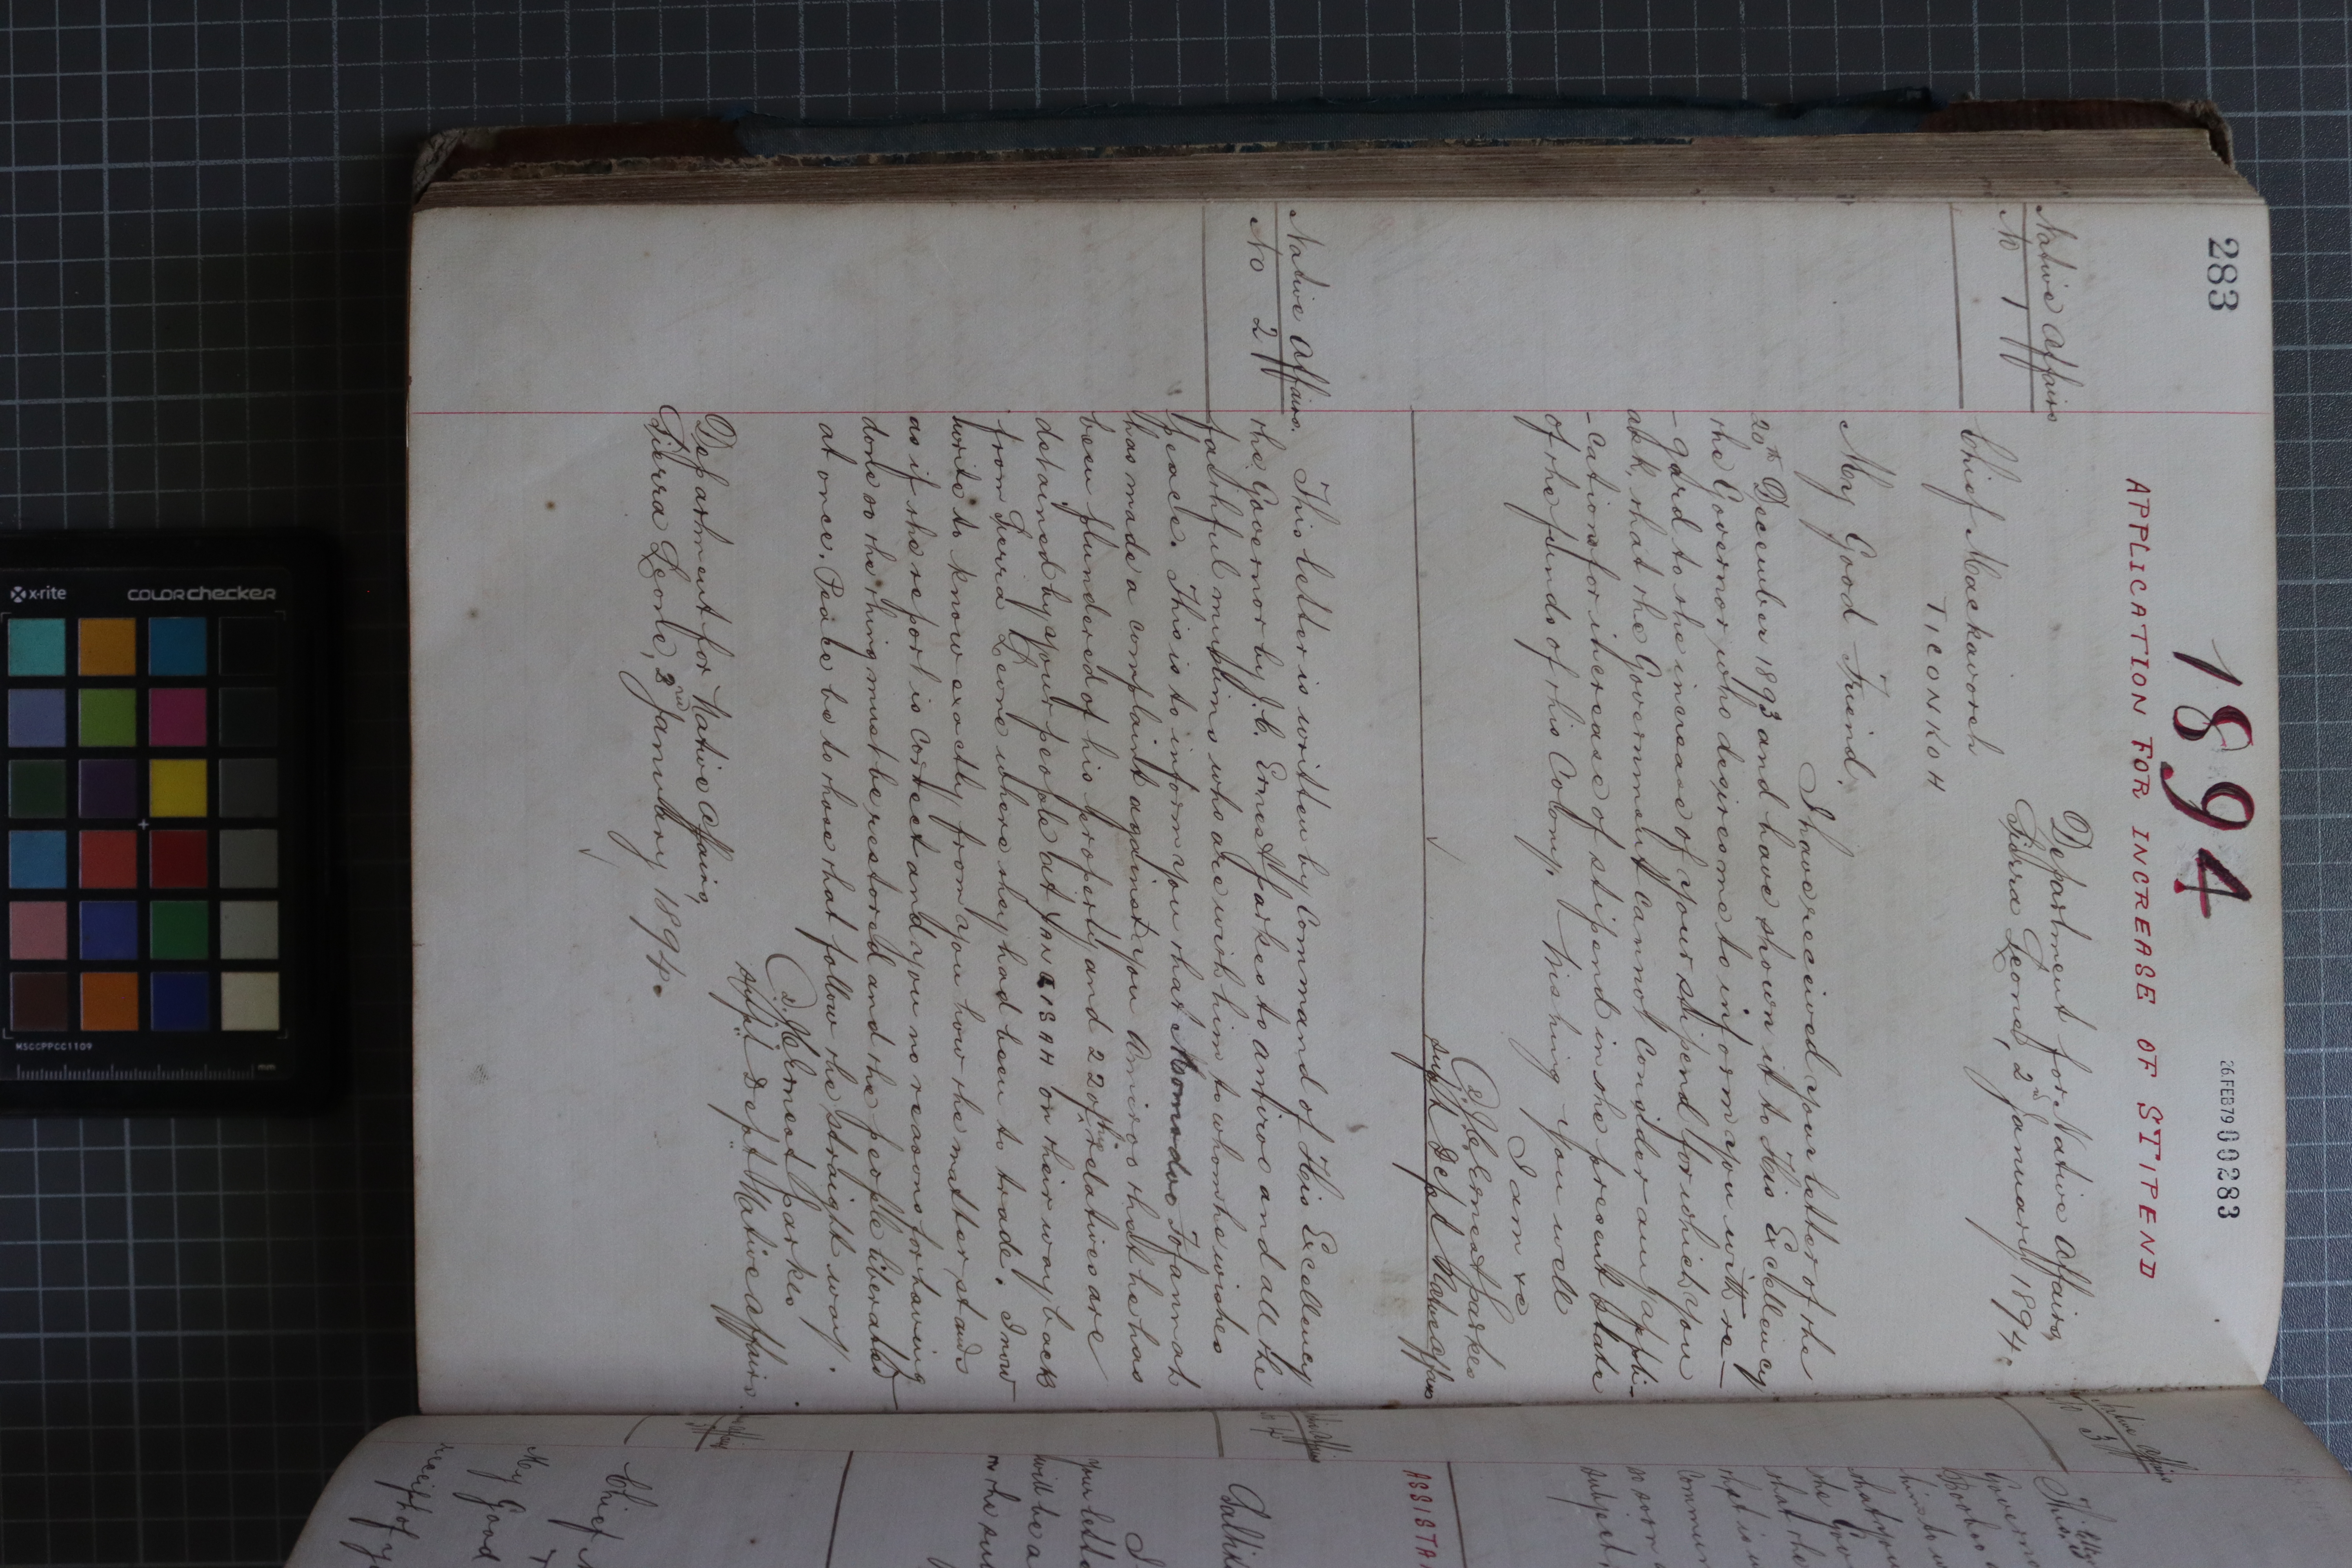 283
1894
26.FEB79 00283
APPLICATION FOR INCREASE OF STIPEND
Native Affairs
No 1
Department for Native Affairs,
Sierra Leone, 2nd January 1894.
Chief Mackavoreh
TICONKOH
My Good Friend,
I have received your letter of the
20th December 1893 and have shown it to His Excellency
the Governor who desires me to inform you with re-
-gard to the increase of your stipend for which you
ask, that the Government cannot consider any appli-
-cations for increase of stipend in the present state
of the funds of this Colony. Wishing you well
I am &c
J. C. Ernest Parkes
Supt Dept Native Affairs
Native Affairs.
No 2
This letter is written by Command of His Excellency
the Governor by J. C. Ernest Parkes to Amiroo and all the
faithful muslims who are with him to whom he wishes
peace. This is to inform you that Momodoo Tofannah
has made a complaint against you Amiroo that he has
been plundered of his property and 22 of his relatives are
detained by your people at on their way back
from Sierra Leone where they had been to trade. I now
write to know exactly from you how the matter stands
as if the report is correct and you no reasons for having
done so the thing must be restored and the people liberated
at once. Peace be to those that follow the straight way.
J. C. Ernest Parkes
Supt Dept Native Affairs.
Department for Native Affairs,
Sierra Leone, 2nd January 1894.
No 3
ASSISTA
Chief
My Good
receipt of y
your lette
will be a
x-rite
COLORchecker
MSCCPPCC1109
mm